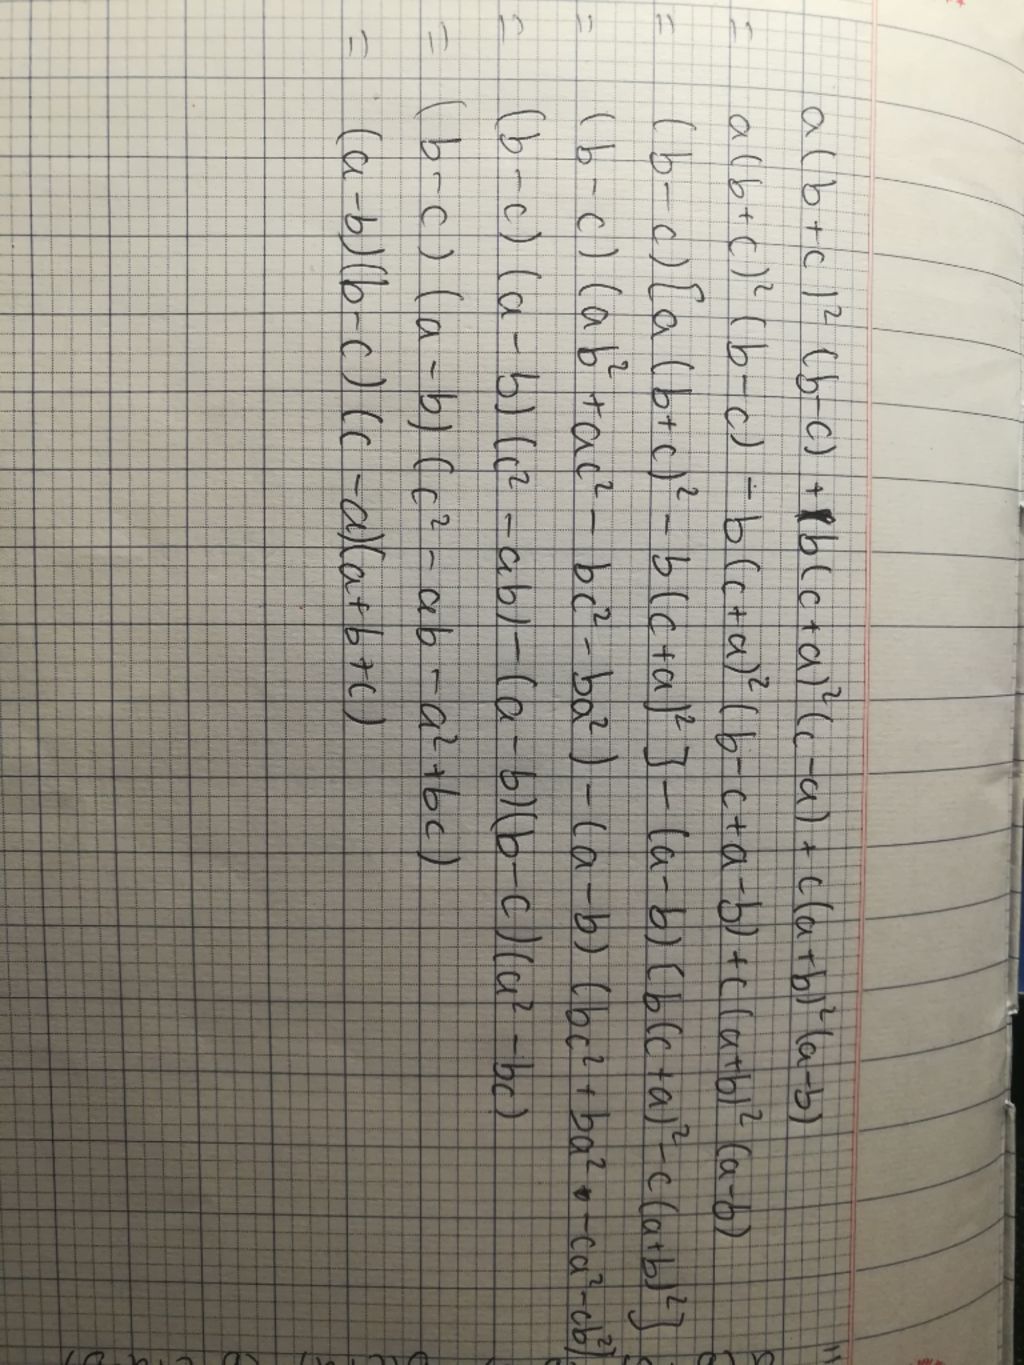 a(b+c)²(b-c)+b(c+a)²(c-a)+c(a+b)²(a-b)
= a(b+c)²(b-c)-b(c+a)²(b-c+a-b)+c(a+b)²(a-b)
= (b-c)[a(b+c)²-b(c+a)²]-(a-b)(b(c+a)²-c(a+b)²]
= (b-c)(ab²+ac²-bc²-ba²)-(a-b)(bc²+ba²-ca²-cb²)
= (b-c)(a-b)(c²-ab)-(a-b)(b-c)(a²-bc)
= (b-c)(a-b)(c²-ab-a²+bc)
= (a-b)(b-c)(c-a)(a+b+c)